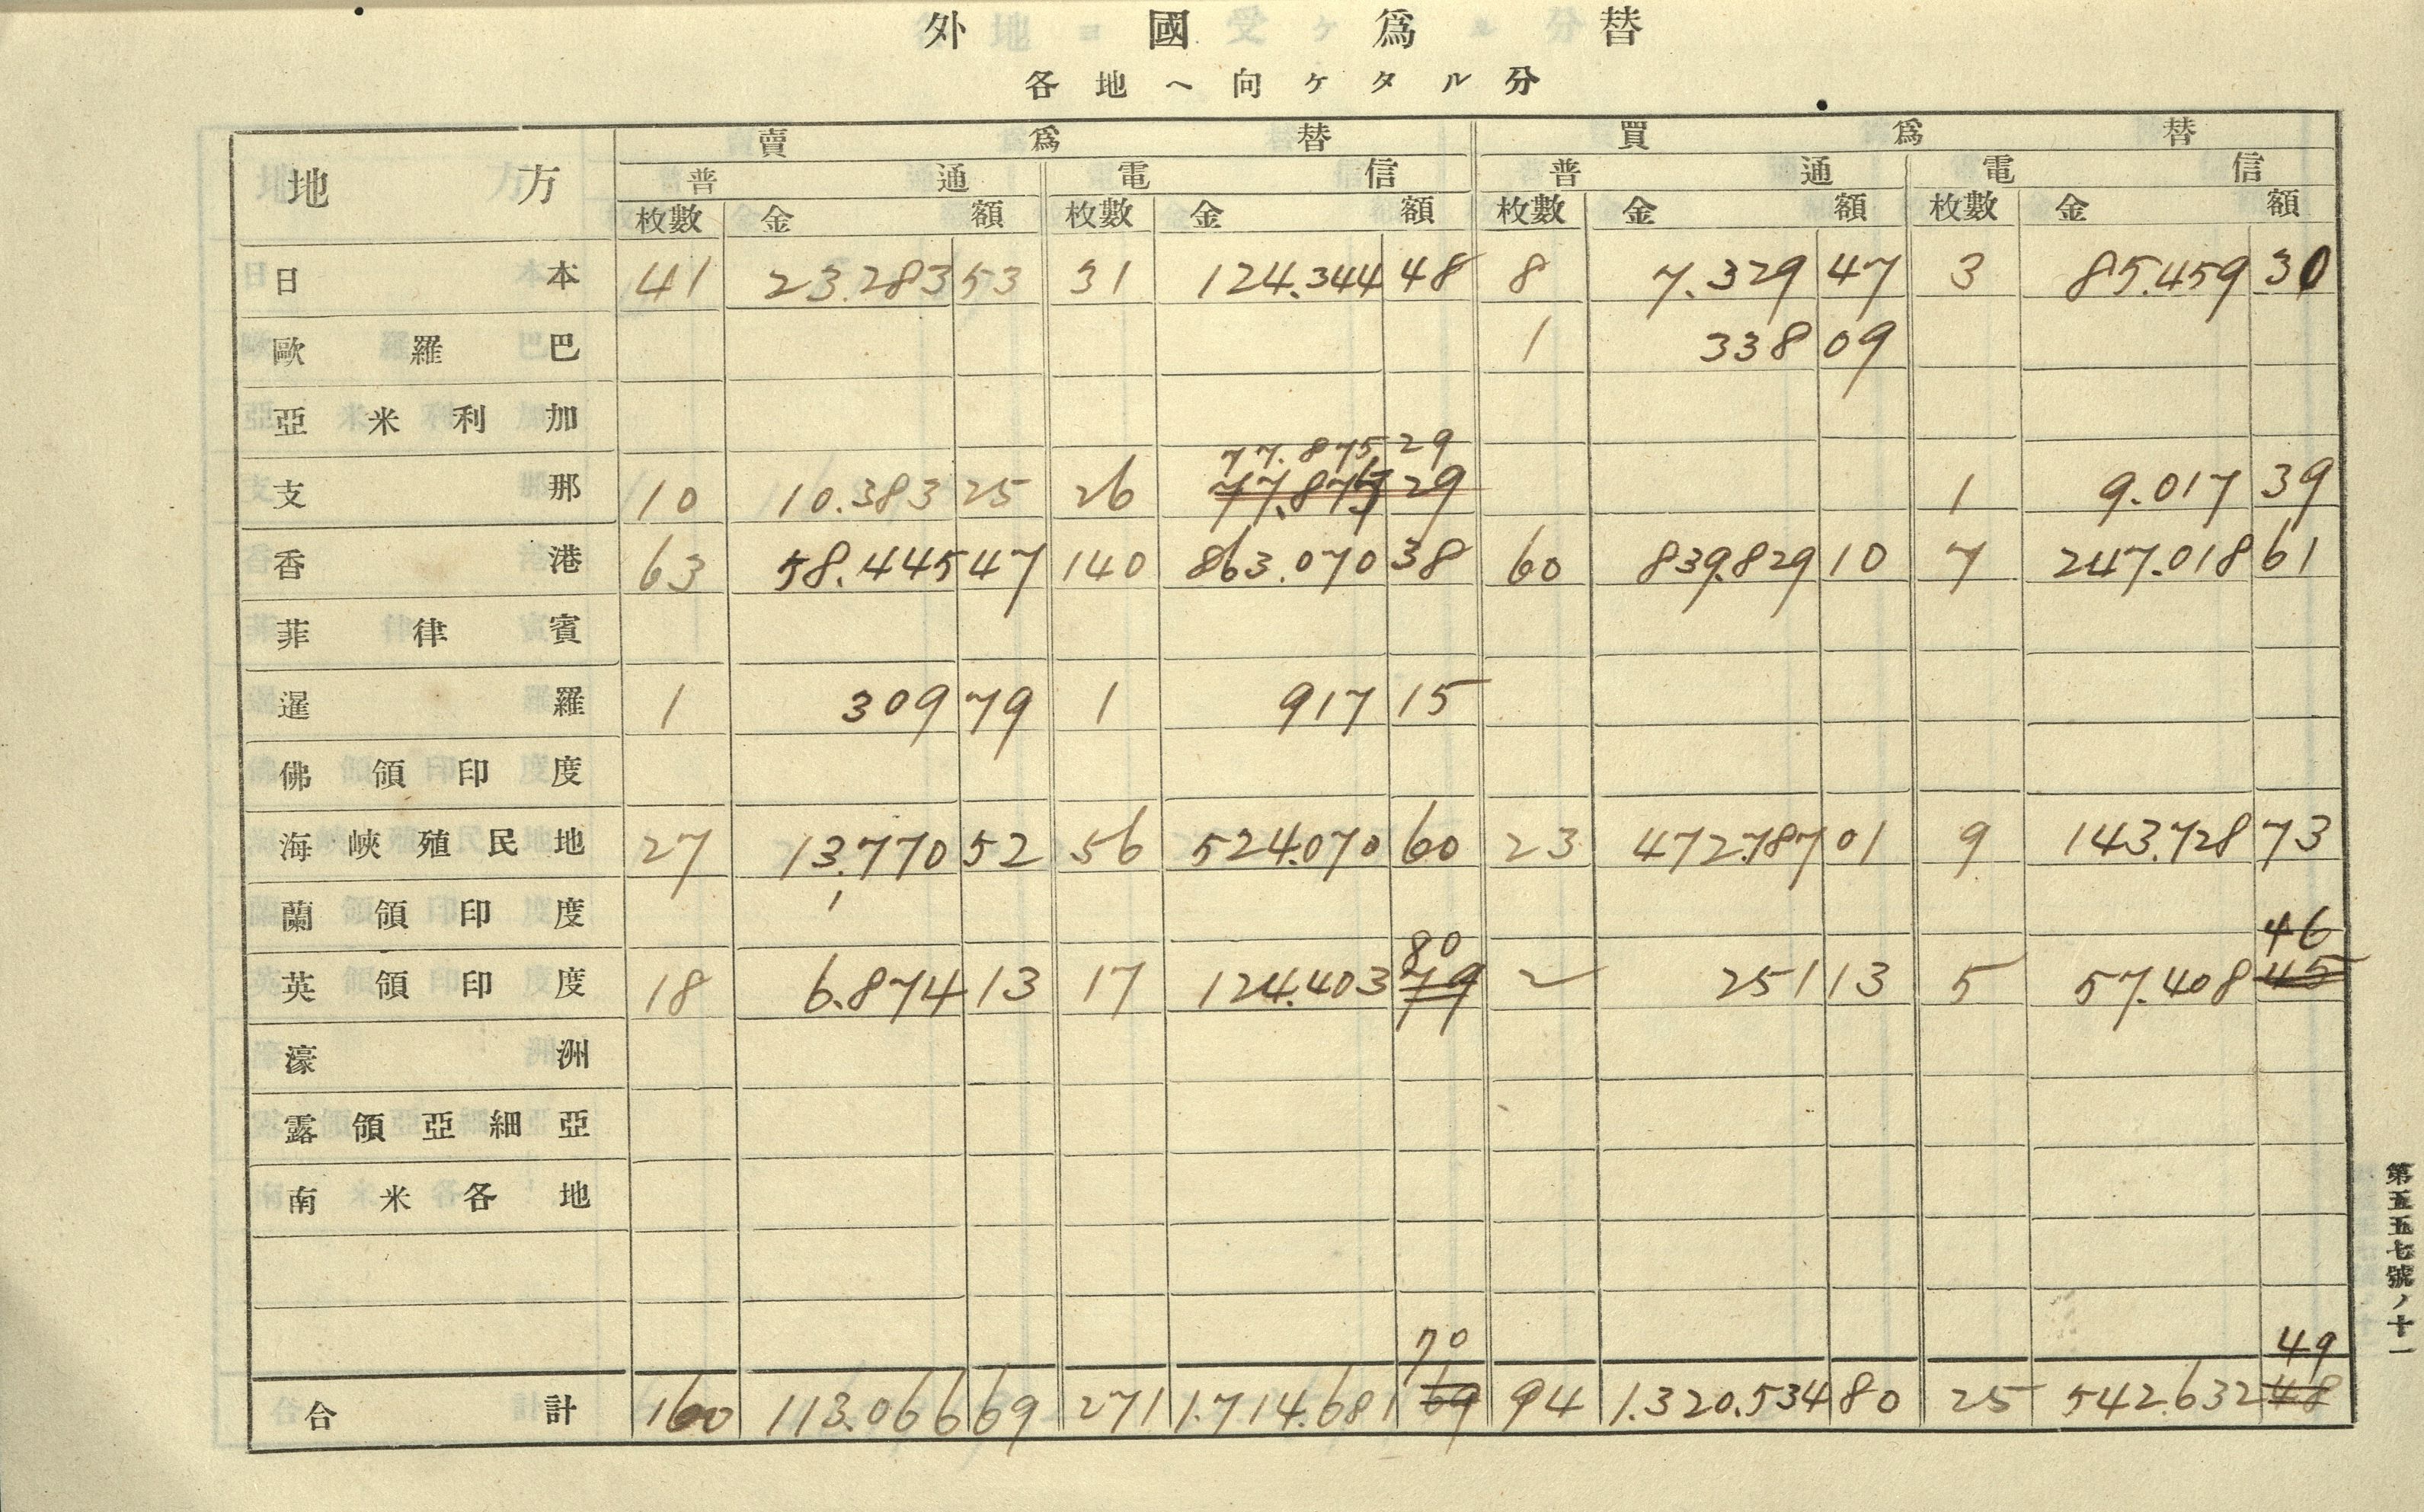 外國爲替
各地ヘ向ケタル分
地方 賣爲替 買爲替
普通 電信 普通 電信
枚數 金額 枚數 金額 枚數 金額 枚數 金額
日本 41 23.283 53 31 124.344 48 8 7.329 47 3 85.459 30
歐羅巴 1 338 09
亞米利加
77.875 29
支那 10 10.383 25 26 29 1 9.017 39
香港 63 58.445 47 140 863.070 38 60 839.829 10 7 247.018 61
菲律賓
暹羅 1 309 79 1 917 15
佛領印度
海峽殖民地 27 13.770 52 56 524.070 60 23 472.787 01 9 143.728 73
蘭領印度
80 46
英領印度 18 6.874 13 17 124.403 79 2 251 13 5 57.408 45
濠洲
露領亞細亞
南米各地
70 49
合計 160 113.066 69 271 1.714.681 69 94 1.320.534 80 25 542.632 48
第五五七號ノ十一